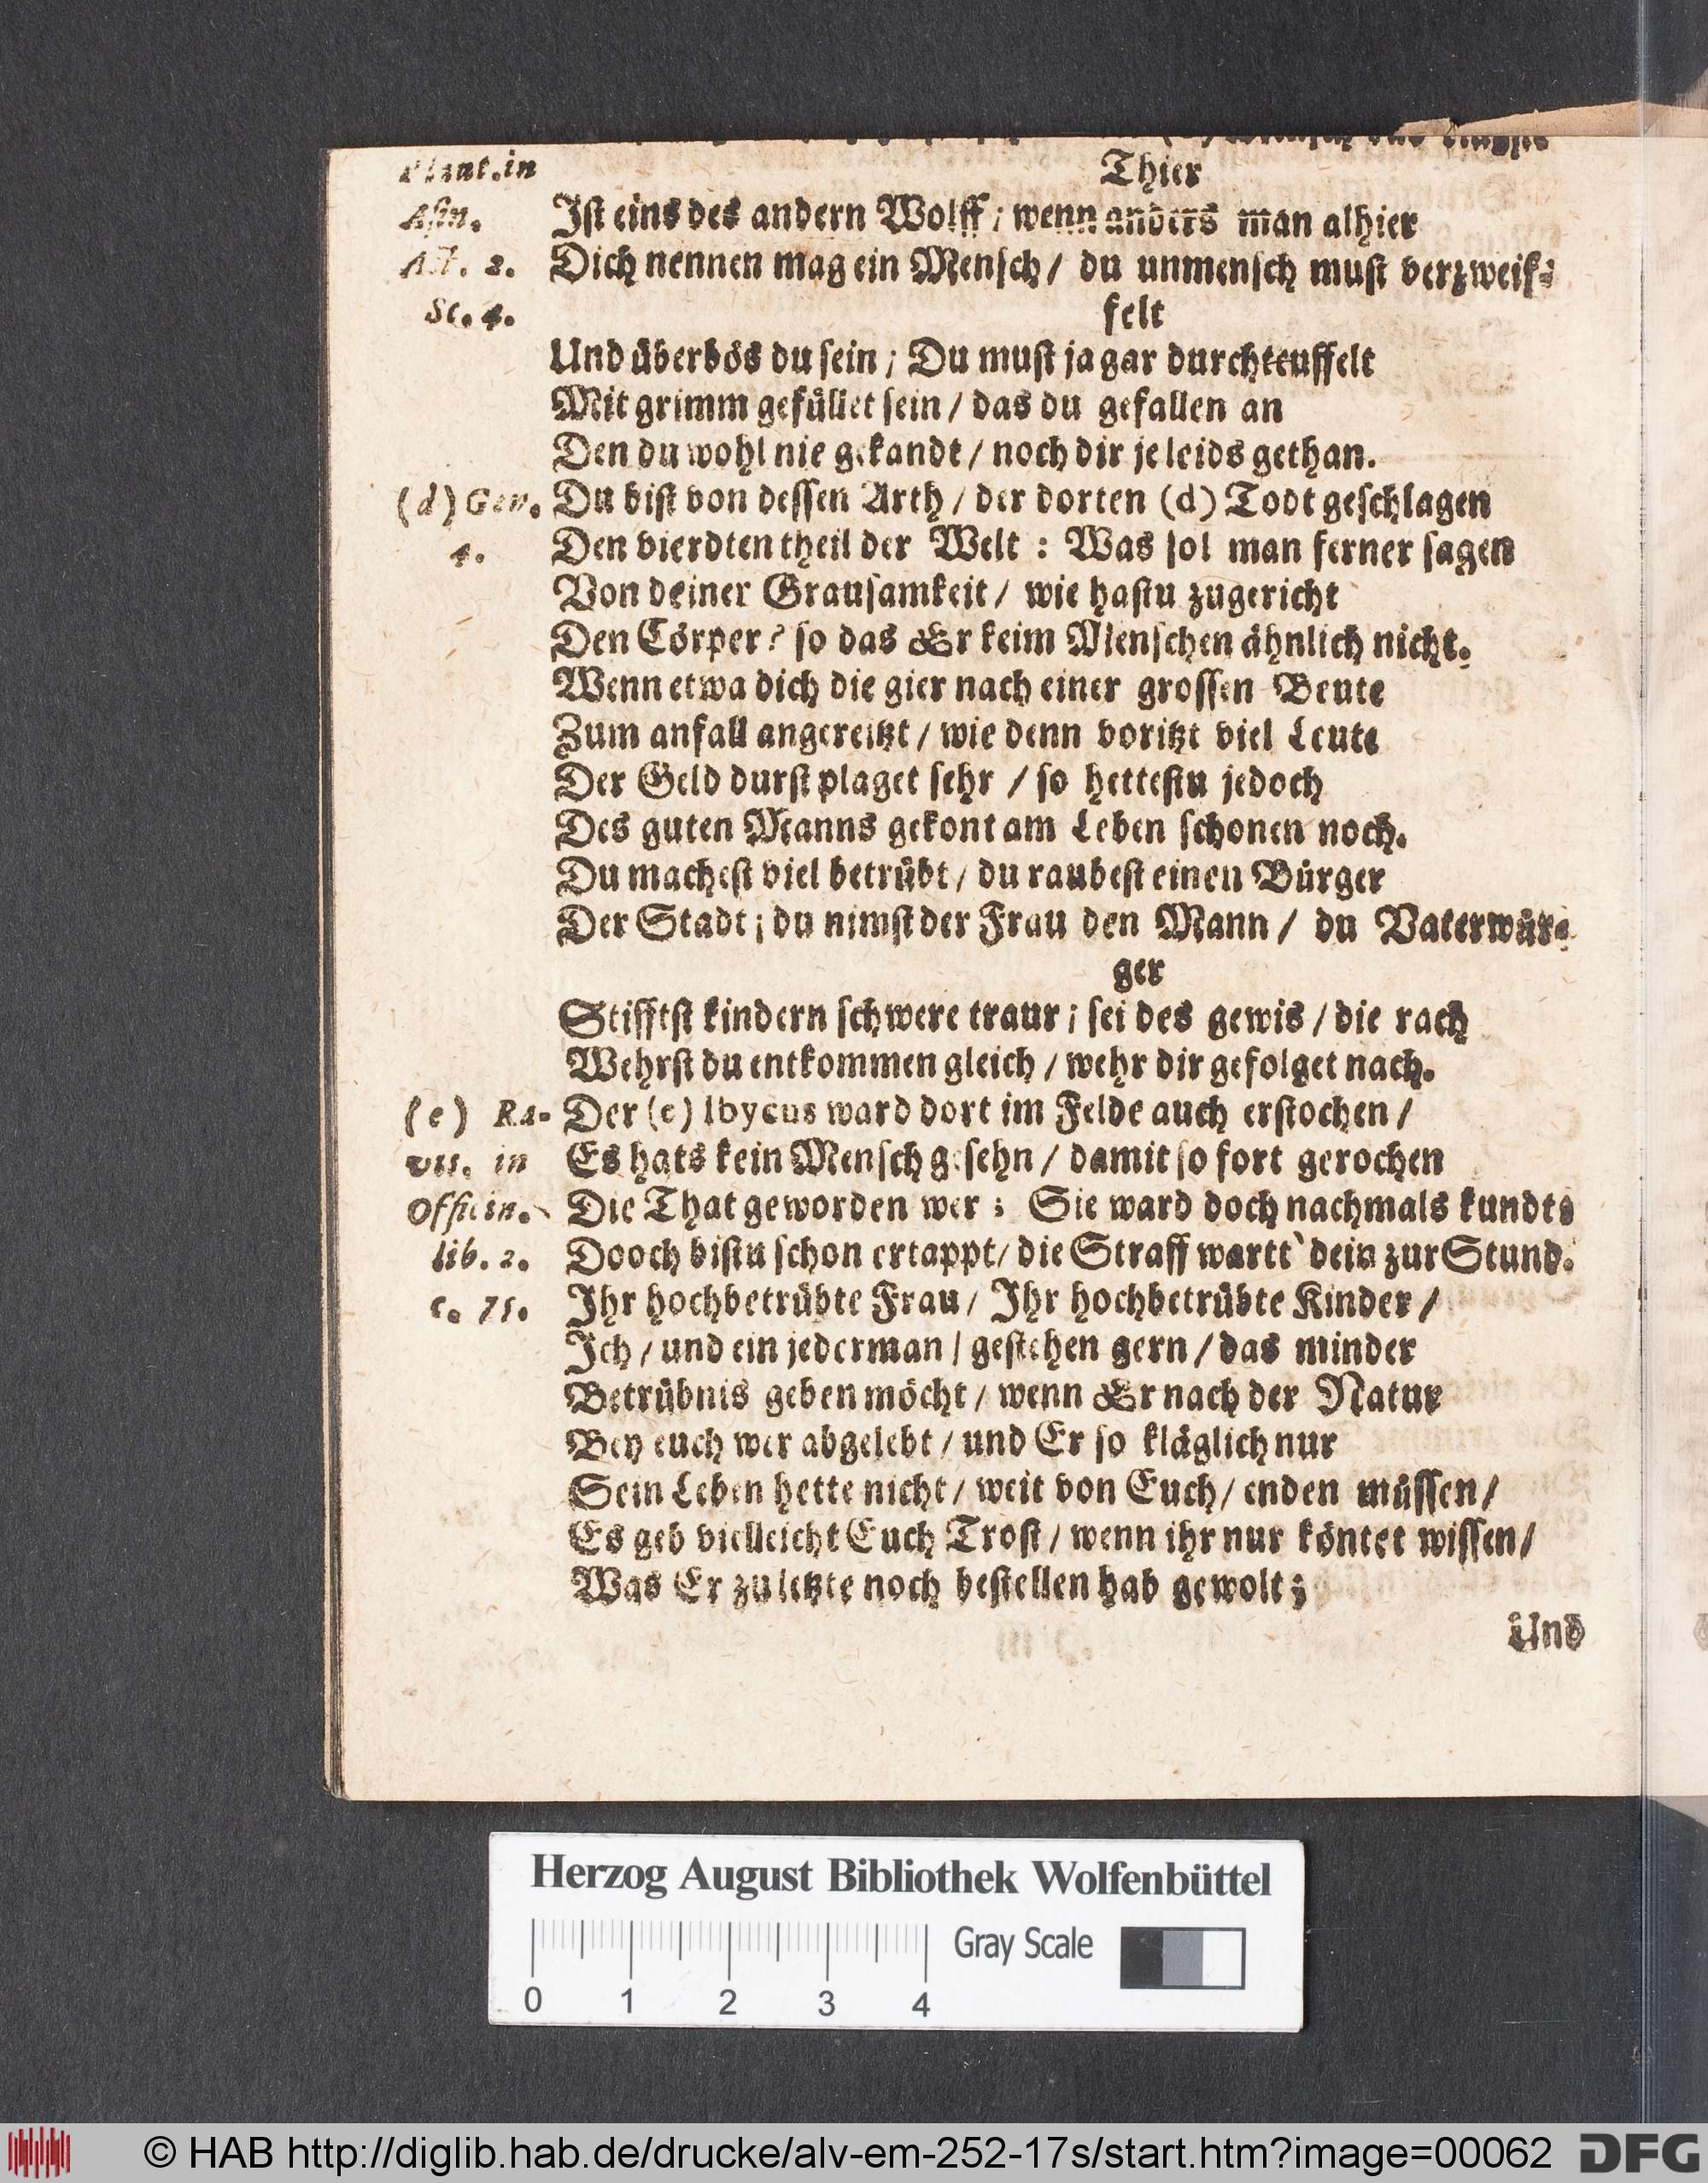 Plaut. in
Thier
Asin.
Ist eins des andern Wolff; wenn anders man alhier
Act. 2.
Dich nennen mag ein Mensch / du unmensch must verzweif-
Sc. 4.
felt
Und überbös du sein; Du must ja gar durchteuffelt
Mit grimm gefüllet sein / das du gefallen an
Den du wohl nie gekandt / noch dir je leids gethan.
(d) Gen.
Du bist von dessen Arth / der dorten (d) Todt geschlagen
4.
Den vierdten theil der Welt : Was sol man ferner sagen
Von deiner Grausamkeit / wie hastu zugericht
Den Cörper? so das Er keim Menschen ähnlich nicht.
Wenn etwa dich die gier nach einer grossen Beute
Zum anfall angereitzt / wie denn voritzt viel Leute
Der Geld durst plaget sehr / so hettestu jedoch
Des guten Manns gekont am Leben schonen noch.
Du machest viel betrübt / du raubest einen Bürger
Der Stadt; du nimst der Frau den Mann / du Vaterwür-
ger
Stifftst kindern schwere traur; sei des gewis / die rach
Wehrst du entkommen gleich / wehr dir gefolget nach.
(e) Ra-
Der (e) Ibycus ward dort im Felde auch erstochen /
vis. in
Es hats kein Mensch gesehn / damit so fort gerochen
Officin.
Die That geworden wer; Sie ward doch nachmals kundt;
lib. 2.
Dooch bistu schon ertappt / die Straff wartt` dein zur Stund.
c. 71.
Ihr hochbetrübte Frau / Ihr hochbetrübte Kinder /
Ich / und ein jederman / gestehen gern / das minder
Betrübnis geben möcht / wenn Er nach der Natur
Bey euch wer abgelebt / und Er so kläglich nur
Sein Leben hette nicht / weit von Euch / enden müssen /
Es geb vielleicht Euch Trost / wenn ihr nur köntet wissen /
Was Er zu letzte noch bestellen hab gewolt;
Und
Herzog August Bibliothek Wolfenbüttel
Gray Scale
0 1 2 3 4
© HAB http://diglib.hab.de/drucke/alv-em-252-17s/start.htm?image=00062
DFG